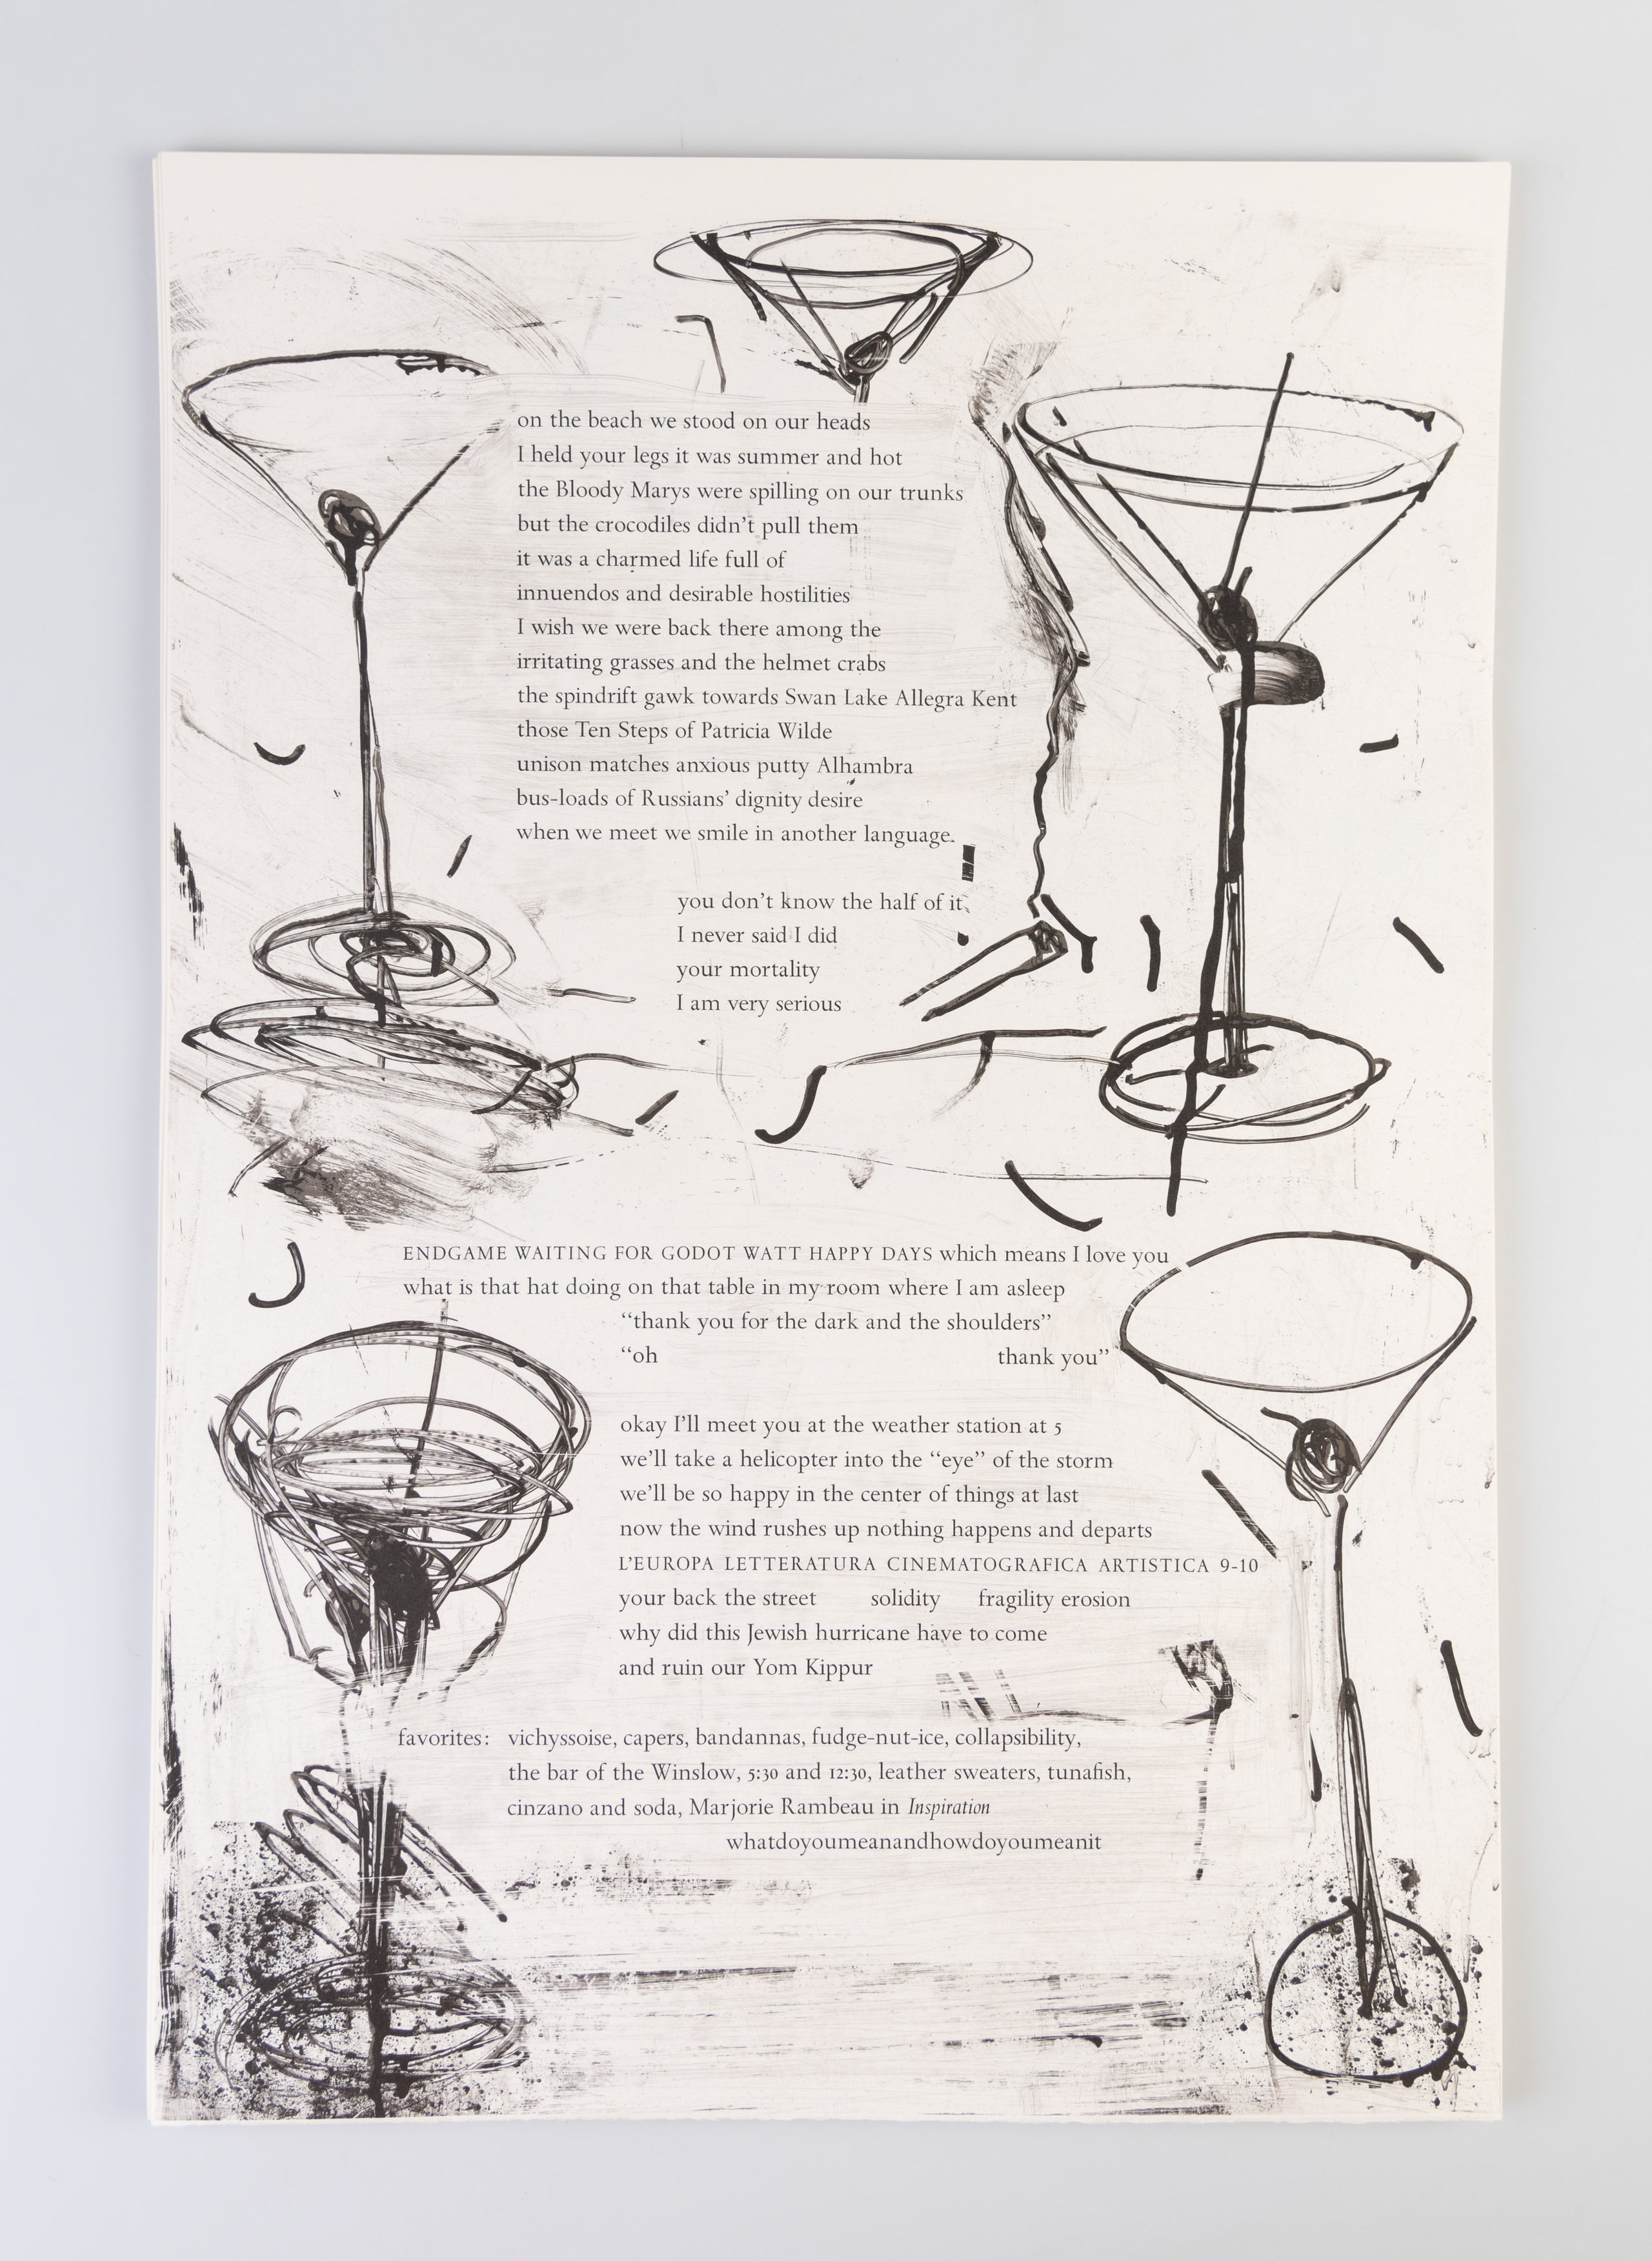 on the beach we stood on our heads
I held your legs it was summer and hot
the Bloody Marys were spilling on our trunks
but the crocodiles didn't pull them
it was a charmed life full of
innuendos and desirable hostilities
I wish we were back there among the
irritating grasses and the helmet crabs
the spindrift gawk towards Swan Lake Allegra Kent
those Ten Steps of Patricia Wilde
unison matches anxious putty Alhambra
bus-loads of Russians' dignity desire
when we meet we smile in another language
you don't know the half of it
I never said I did
your mortality
I am very serious
ENDGAME WAITING FOR GODOT WATT HAPPY DAYS which means I love you
what is that hat doing on that table in my room where I am asleep
“thank you for the dark and the shoulders”
“oh thank you”
okay I'll meet you at the weather station at 5
we'll take a helicopter into the “eye” of the storm
we'll be so happy in the center of things at last
now the wind rushes up nothing happens and departs
L'EUROPA LETTERATURA CINEMATOGRAFICA ARTISTICA 9-10
your back the street solidity fragility erosion
why did this Jewish hurricane have to come
and ruin our Yom Kippur
favorites: vichyssoise, capers, bandannas, fudge-nut-ice, collapsibility,
the bar of the Winslow, 5:30 and 12:30, leather sweaters, tunafish,
cinzano and soda, Marjorie Rambeau in Inspiration
whatdoyoumeanandhowdoyoumeanit